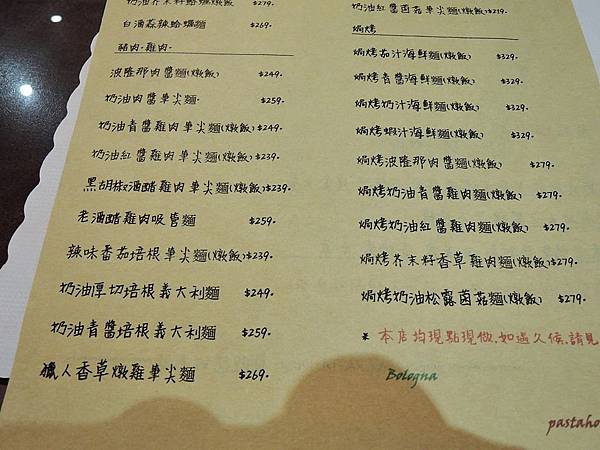 奶油芥末籽蛤蠣燉飯 $279.
白酒蒜辣蛤蠣麵 $269.
豬肉.雞肉.
波隆那肉醬麵(燉飯) $249.
奶油肉醬筆尖麵. $259.
奶油青醬雞肉筆尖麵(燉飯)$249.
奶油紅醬雞肉筆尖麵(燉飯)$239.
黑胡椒酒醋雞肉筆尖麵(燉飯)$239.
老酒醋雞肉吸管麵 $259.
辣味番茄培根筆尖麵(燉飯)$239.
奶油厚切培根義大利麵 $249.
奶油青醬培根義大利麵 $259.
獵人香草燉雞筆尖麵 $269.
奶油紅醬菌菇筆尖麵(燉飯)$219.
焗烤
焗烤茄汁海鮮麵(燉飯) $329.
焗烤青醬海鮮麵(燉飯) $329.
焗烤奶汁海鮮麵(燉飯) $329.
焗烤蝦汁海鮮麵(燉飯) $329.
焗烤波隆那肉醬麵(燉飯) $279.
焗烤奶油青醬雞肉麵(燉飯)$279.
焗烤奶油紅醬雞肉麵(燉飯)$279.
焗烤芥末籽香草雞肉麵(燉飯)$279.
焗烤奶油松露菌菇麵(燉飯) $279.
* 本店均現點現做.如遇久候.請見
Bologna
pastaho